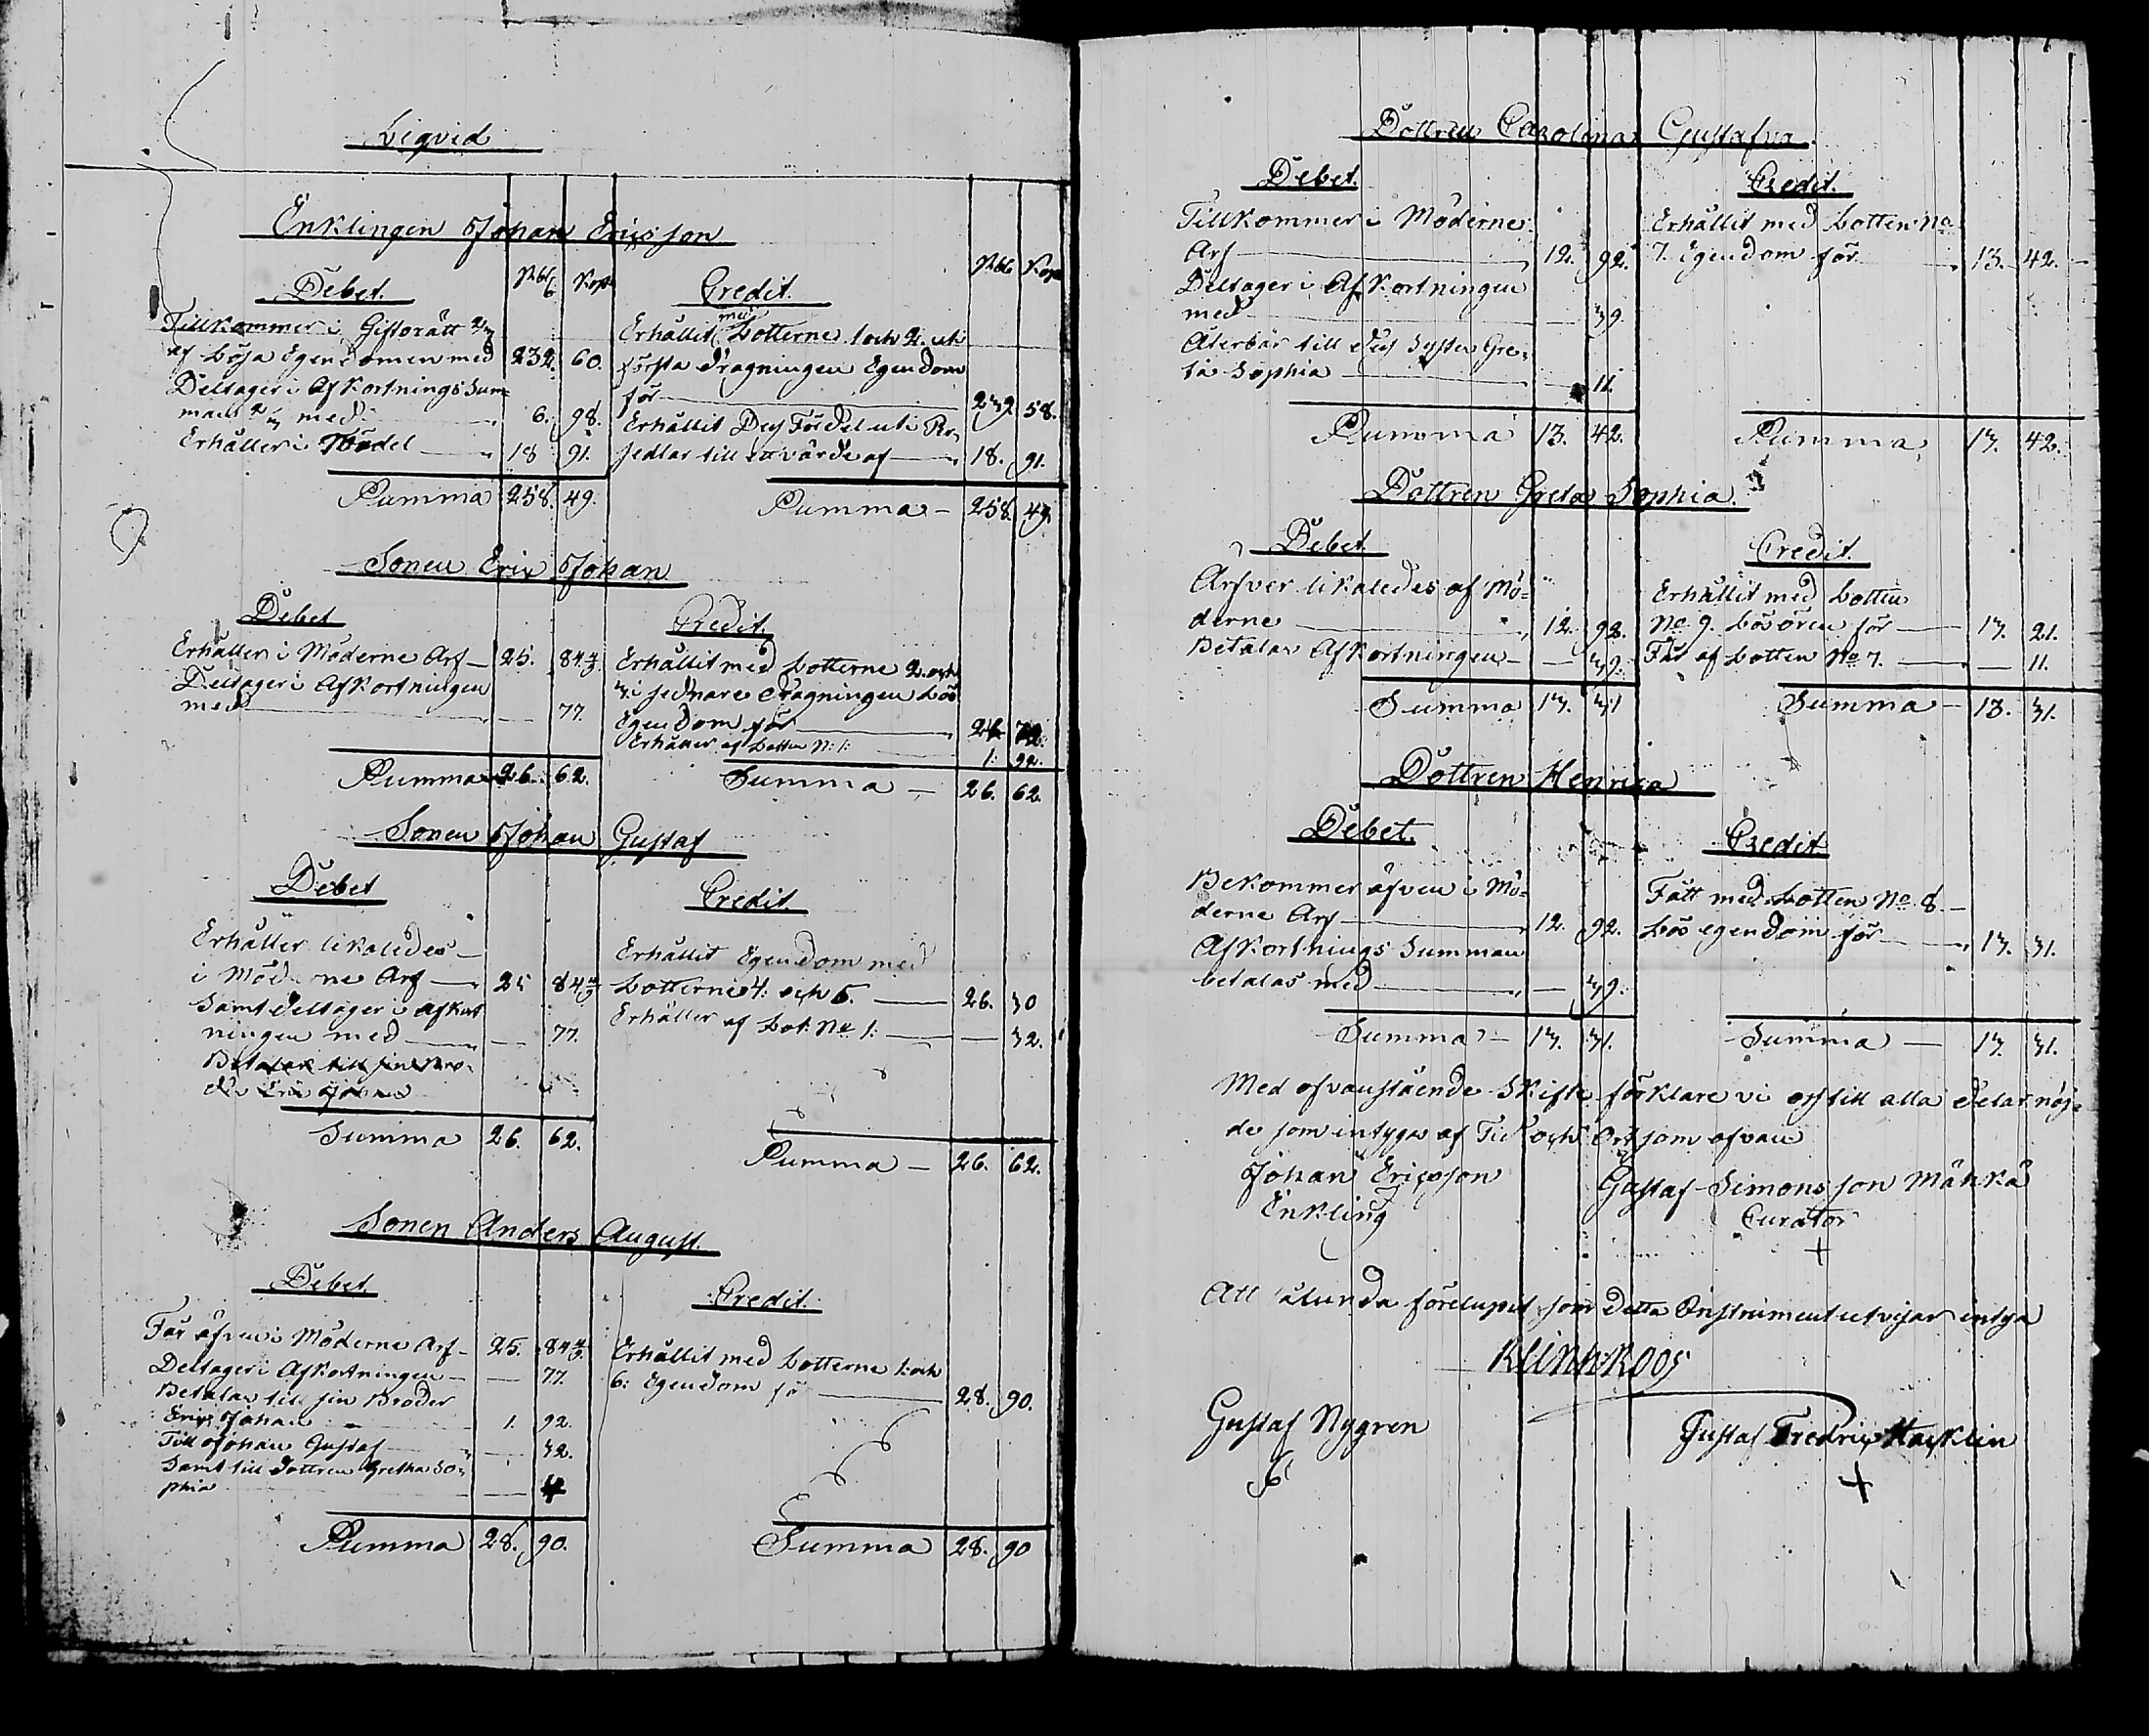 Liqvid
Enklingen Johan Ericsson
Debet. Rbl Kop
Tillkommer i Giftorätt 2/3
af Lösa Egendomen med 232. 60.
Deltager i Afkortnings Sum-
man 2/3 med 6. 98.
Erhåller i Fördel 18 91.
Summa 258. 49.
Credit. Rbl Kop
Erhållit med Lotterne 1 och 2. uti
första dragningen Egendom
för 239 58.
Erhållit Dess Fördel uti Per-
sedlar till ett värde af 18. 91.
Summa - 258. 49.
Sonen Eric Johan
Debet
Erhåller i Möderne Arf - 25. 84 4/5.
Deltager i Afkortningen
med 77.
Summa 26. 62.
Credit.
Erhållit med Lotterne 2. och
3. i sednare dragningen Lös
Egendom för
Erhåller af Lotten N: 1: 1: 92.
Summa - 26. 62.
Sonen Johan Gustaf
Debet
Erhåller likaledes -
i Möderne Arf 25 84 4/5
Samt deltager i afkort
ningen med - 77.
Betalar till sin Bro-
der Eric Johan
Summa 26. 62.
Credit.
Erhållit Egendom med
Lotterne 4: och 5. - 26. 30
Erhåller af Lot: No 1: - 32.
Summa - 26. 62.
Sonen Anders August.
Debet.
Får äfven i Möderne Arf - 25. 84 4/5.
Deltager i Afkortningen - 77.
Betalar till sin Broder
Eric Johan 1. 92.
Till Johan Gustaf - 32.
Samt till dottren Gretha So-
phia -
Summa 28. 90.
Credit.
Erhållit med Lotterne 1: och
6: Egendom för 28. 90.
Summa 28. 90
Dottren Carolina Gustafva.
Debet.
Tillkommer i Möderne
Arf 12. 92.
Deltager i Afkortningen
med - 39.
Återbär till dess Syster Gre-
ta Sophia - 11.
Summa 13. 42.
Credit.
Erhållit med Lotten No
7. Egendom för 13. 42.
Summa 13. 42.
Dottren Greta Sophia.
Debet
Arfver likaledes af Mö-
derne 12. 92.
Betalar Afkortningen - 39.
Summa 13. 31
Credit.
Erhållit med Lotten
No 9. Lösören för 13. 21.
Får af Lotten No 7. - 11.
Summa - 13. 31.
Dottren Henrica
Debet.
Bekommer äfven i Mö-
derne Arf 12. 92.
Afkortnings Summan
betalas med - 39.
Summa - 13. 31.
Credit
Fått med Lotten No 8 -
Lös egendom för 13. 31.
Summa - 13. 31.
Med ofvanstående Skifte förklare vi oss till alla delar nöj-
de som intygas af Tid och Ort som ofvan
Johan Ericsson
Enkling
Gustaf Simonsson Mähkä
Curator
+
Att sålunda förelupit som detta Instrument utvisar intyga
Gustaf Nygren
Gustaf Fredric
+